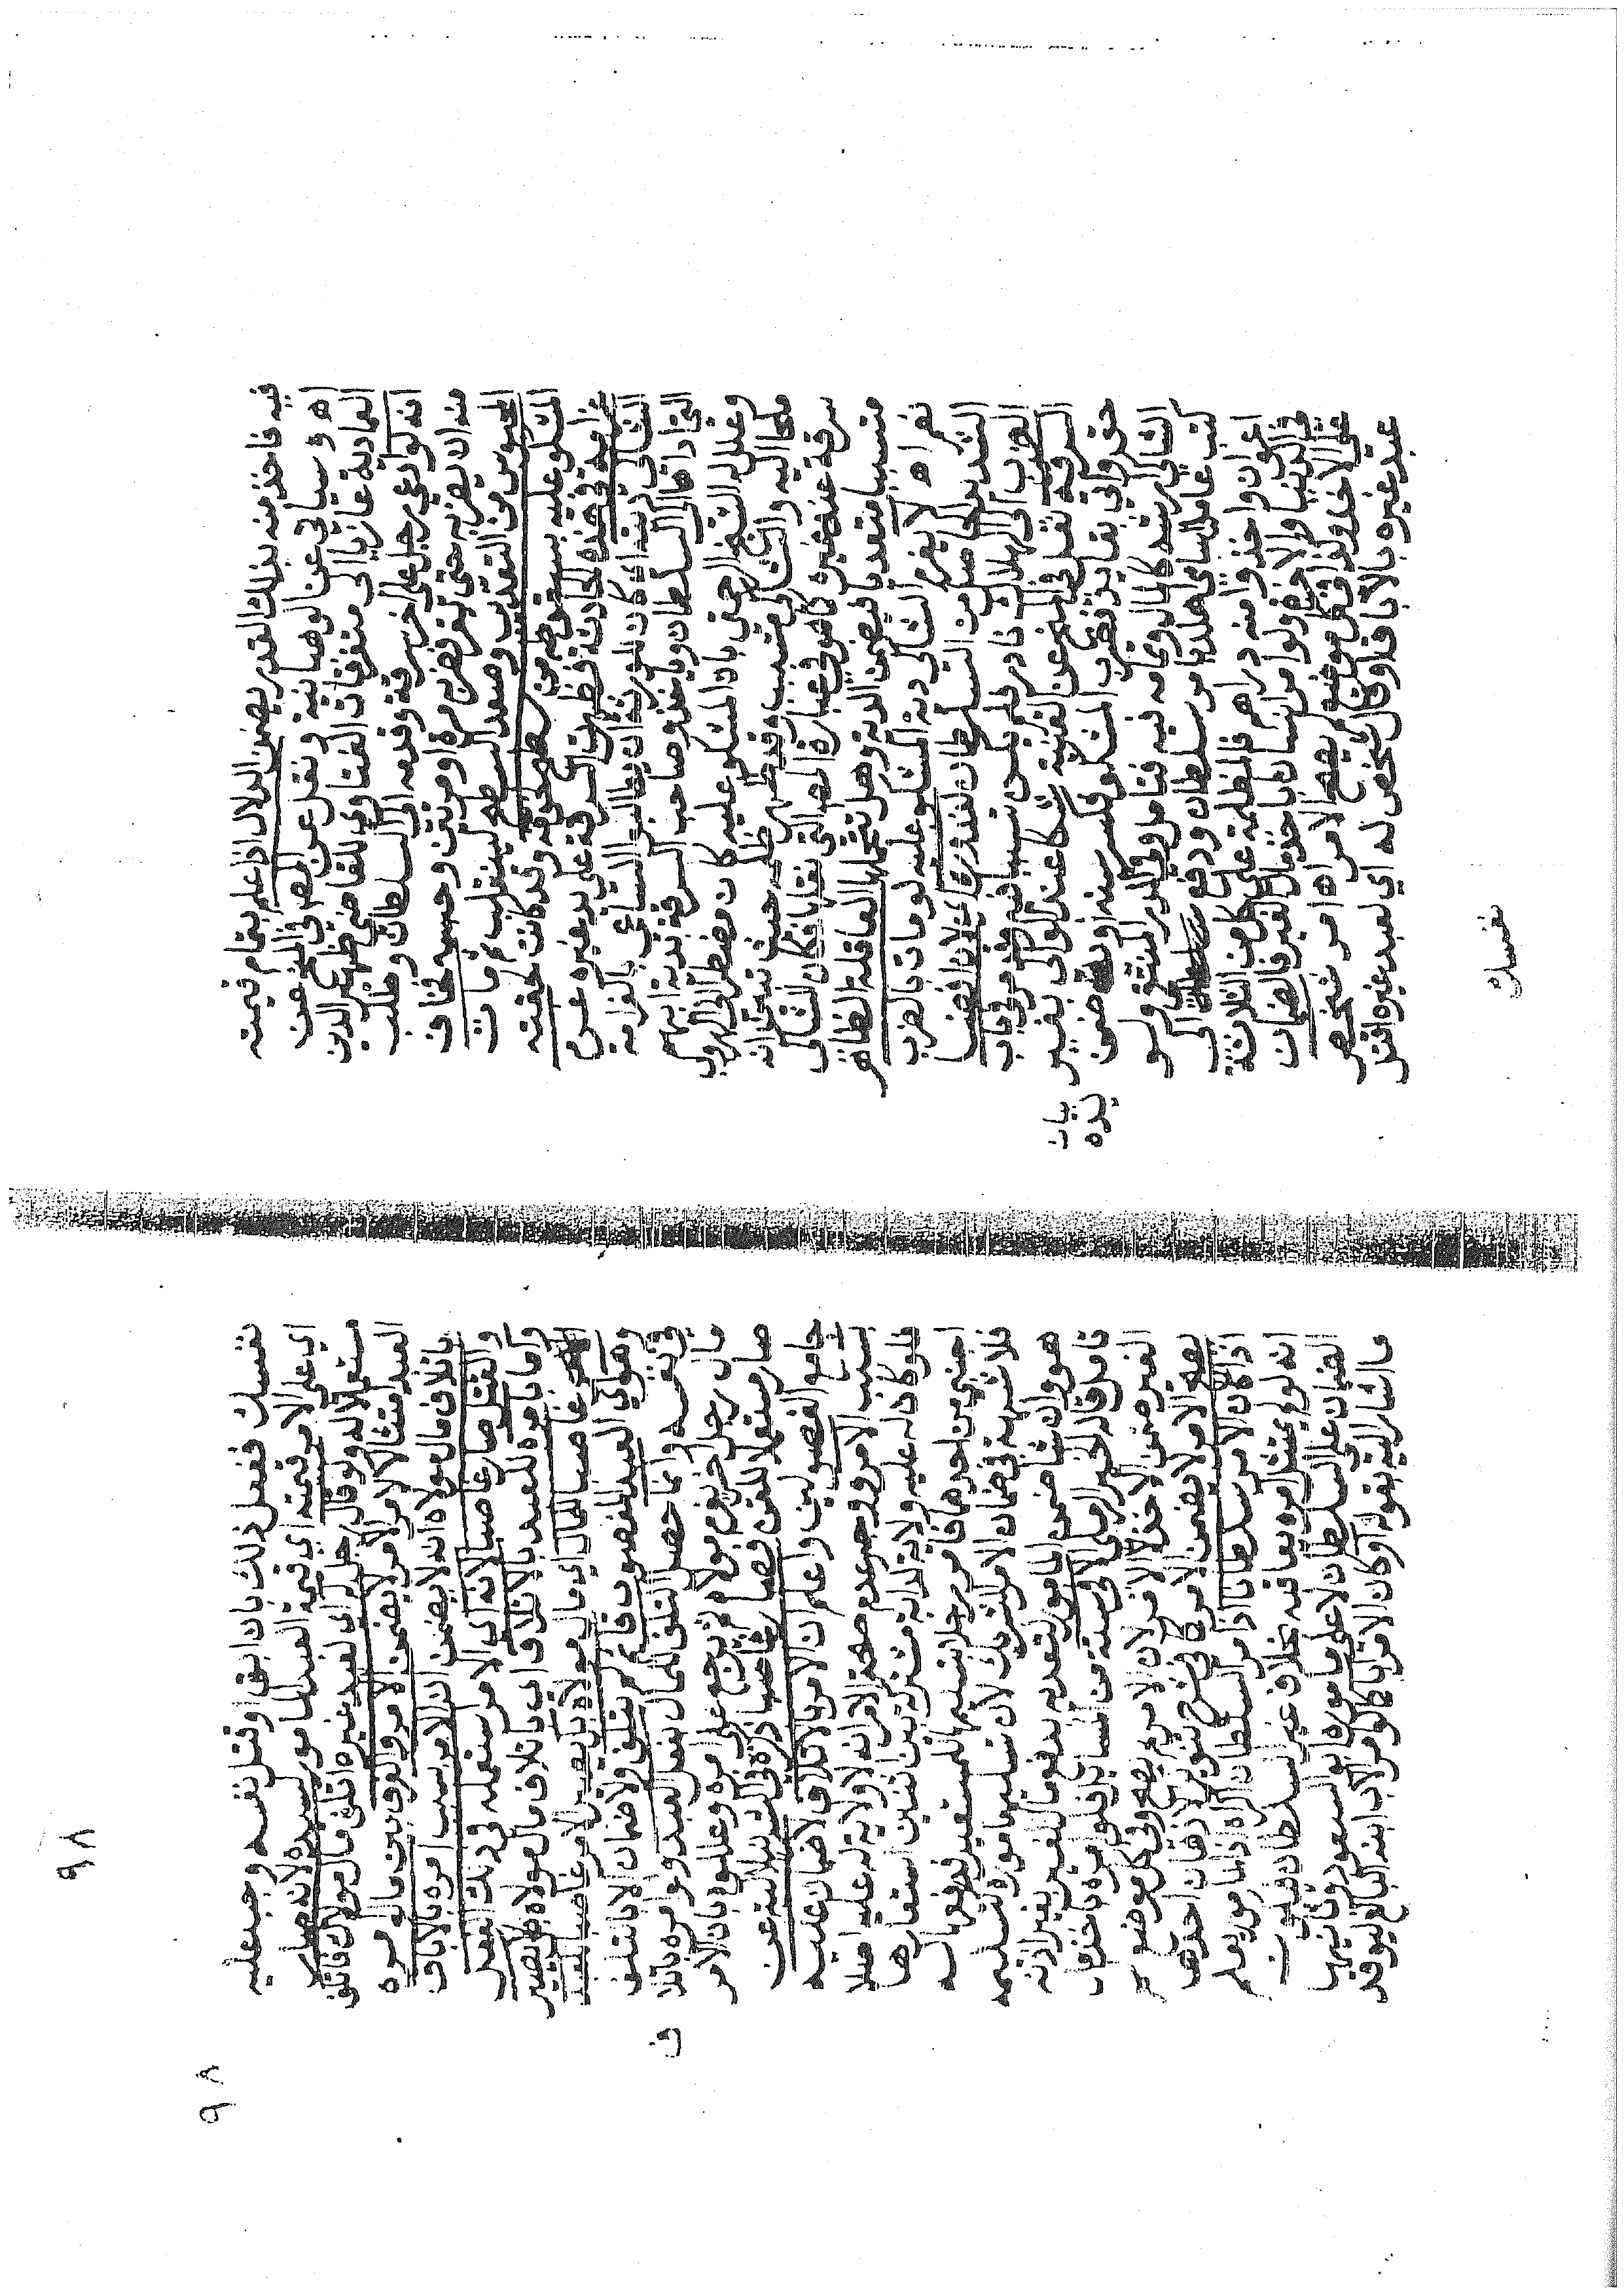 فيه فاخذ منه بذلك القدر يضمن الدلال اذا علم بتمام قيمته
اه وسياتي عن الوهبانية ونقل عن المص في المنح عن
العمادية عازيا الى متفرقات الفتاوي للقاضي ظهير الدين
انه لو ادعى رجل على اخر سرقة وقدمه الى السلطان وطلب
منه ان يضربه حتى يقر فضربه مرة او مرتين وحبسه فخاف
المحبوس من التعذيب وصعد السطح لينفلت ثم مات
المشكو عليه بسقوطه من سطح لخوفه وقد كانت لحقته
غرامة في هذه الحادثة فظهرت السرقة على يد غيره غرم
الشاكي ديته اي كان للورثة ان يطالبوا الساعي بالغرامة
التي اداها الى السلطان وياخذوا صاحب السرقة بدية ابيهم
وعلله الشيخ الرحمتي بان المشكو عليه كان مضطرا الى الهروب
ملجأ اليه والشاكي متسبب وقد ظهر ظلمه حيث تبين انه
سرقة عند غيره كما هو في عبارة المص التي نقلناها فكان الشاكي
متسببا متعديا فيضمن الدية وهل تتحملها العاقلة الظاهر
نعم اه لا يغرم الشاكي دية المشكو عليه لو مات بالضرب
الشديد الحاصل من السلطان لندوره اي لان افضاء
الضرب الى الهلاك نادر فلم يكن تسببا فيه فتذكر في باب
السرقة نقل في المنح عن القنية شكا عند الوالي بغير
حق واتى بقائد فضرب المشكو فكسر سنه او يده ضمن
الشاكي ارشه كالمال وتمامه فيه فتامل وفي الدر المنتقى ولو
كتب عامل اسامي اهل بلدة بامر سلطان ودفع الى
اعوان واخذوا منه دراهم فالمظلمة على كل من الثلاثة
في الدنيا والاخرة ولو امر انسانا باخذ مال الغير فالضمان
على الاخذ ولذا في كل موضع لم يصح الامر اه امر شخص
عبد غيره بالاباق او قال شخص له اي لعبد غيره اقتل
بيان
يده
نفسك
نفسك ففعل ذلك بان ابق او قتل نفسه وجب عليه
اي على الآمر قيمته اي قيمة العبد المامور لسيده لانه صار
مستعملا له ولو قال رجل اي لعبد غيره اتلف مال مولاك فاتلف
العبد امتثالا لامره لا يضمن الآمر والفرق بين ما لو امره
باتلاف مال مولاه انه لا يضمن ان الآمر بسبب امره بالاباق
والقتل صار غاصبا لانه اي الآمر استعمله في ذلك الفعل
واما بامره للعبد بالاتلاف اي باتلاف مال مولاه لا يصير
الآمر غاصبا للمال اي مال مولاه بل يصير الآمر غاصبا للعبد
وهو اي العبد المغصوب قائم لم يتلف ولا ضمان الا بالتلف
في نفسه وانما حصل التلف للمال بفعل العبد ولو امره باتلا
ف
مال رجل اخر يغرم مولاه ثم يرجع على آمره وعللوه بان الآمر
صار مستعملا للقن فصار غاصبا ذكره في الشرنبلالية عن
جامع الفصولين واعلم ان الآمر بالاتلاف لا ضمان عليه
بسبب الامر ووجه عدم صحة الامر انه لا ولاية له عليه اصلا
فلو كان له عليه ولاية لدابة مشتركة بين اثنين استعارها
اجنبي من احدهما فامر رجلا بتسليمها للمستعير فدفعها له
فلا شبهة في ضمان الآمر الشريك لان تسليم ماموره كتسليمه
هو وان شا ضمن المامور لتعديه بدفع مال الغير بغير اذنه
فامر قاله الخير الرملي الا في ستة من المسائل فلو امره باخذ مال
الغير ضمن الاخذ لا الآمر لان الامر لم يصح وفي كل موضع لم
يصح الامر لا يضمن الآمر كما في شرح تنوير الاذهان احدها
اذا كان الآمر سلطانا اذ امر السلطان اكراه اذا المامور يعلم
انه لو لم يمتثل امره يعاقبه بخلاف غير السلطان فيكون
الضمان على السلطان لا على ماموره ابو السعود وثانيها
ما اشار اليه بقوله او كان الآمر ابا كما لو امر الاب ابنه البالغ ليوقد
٩٨
٩٨